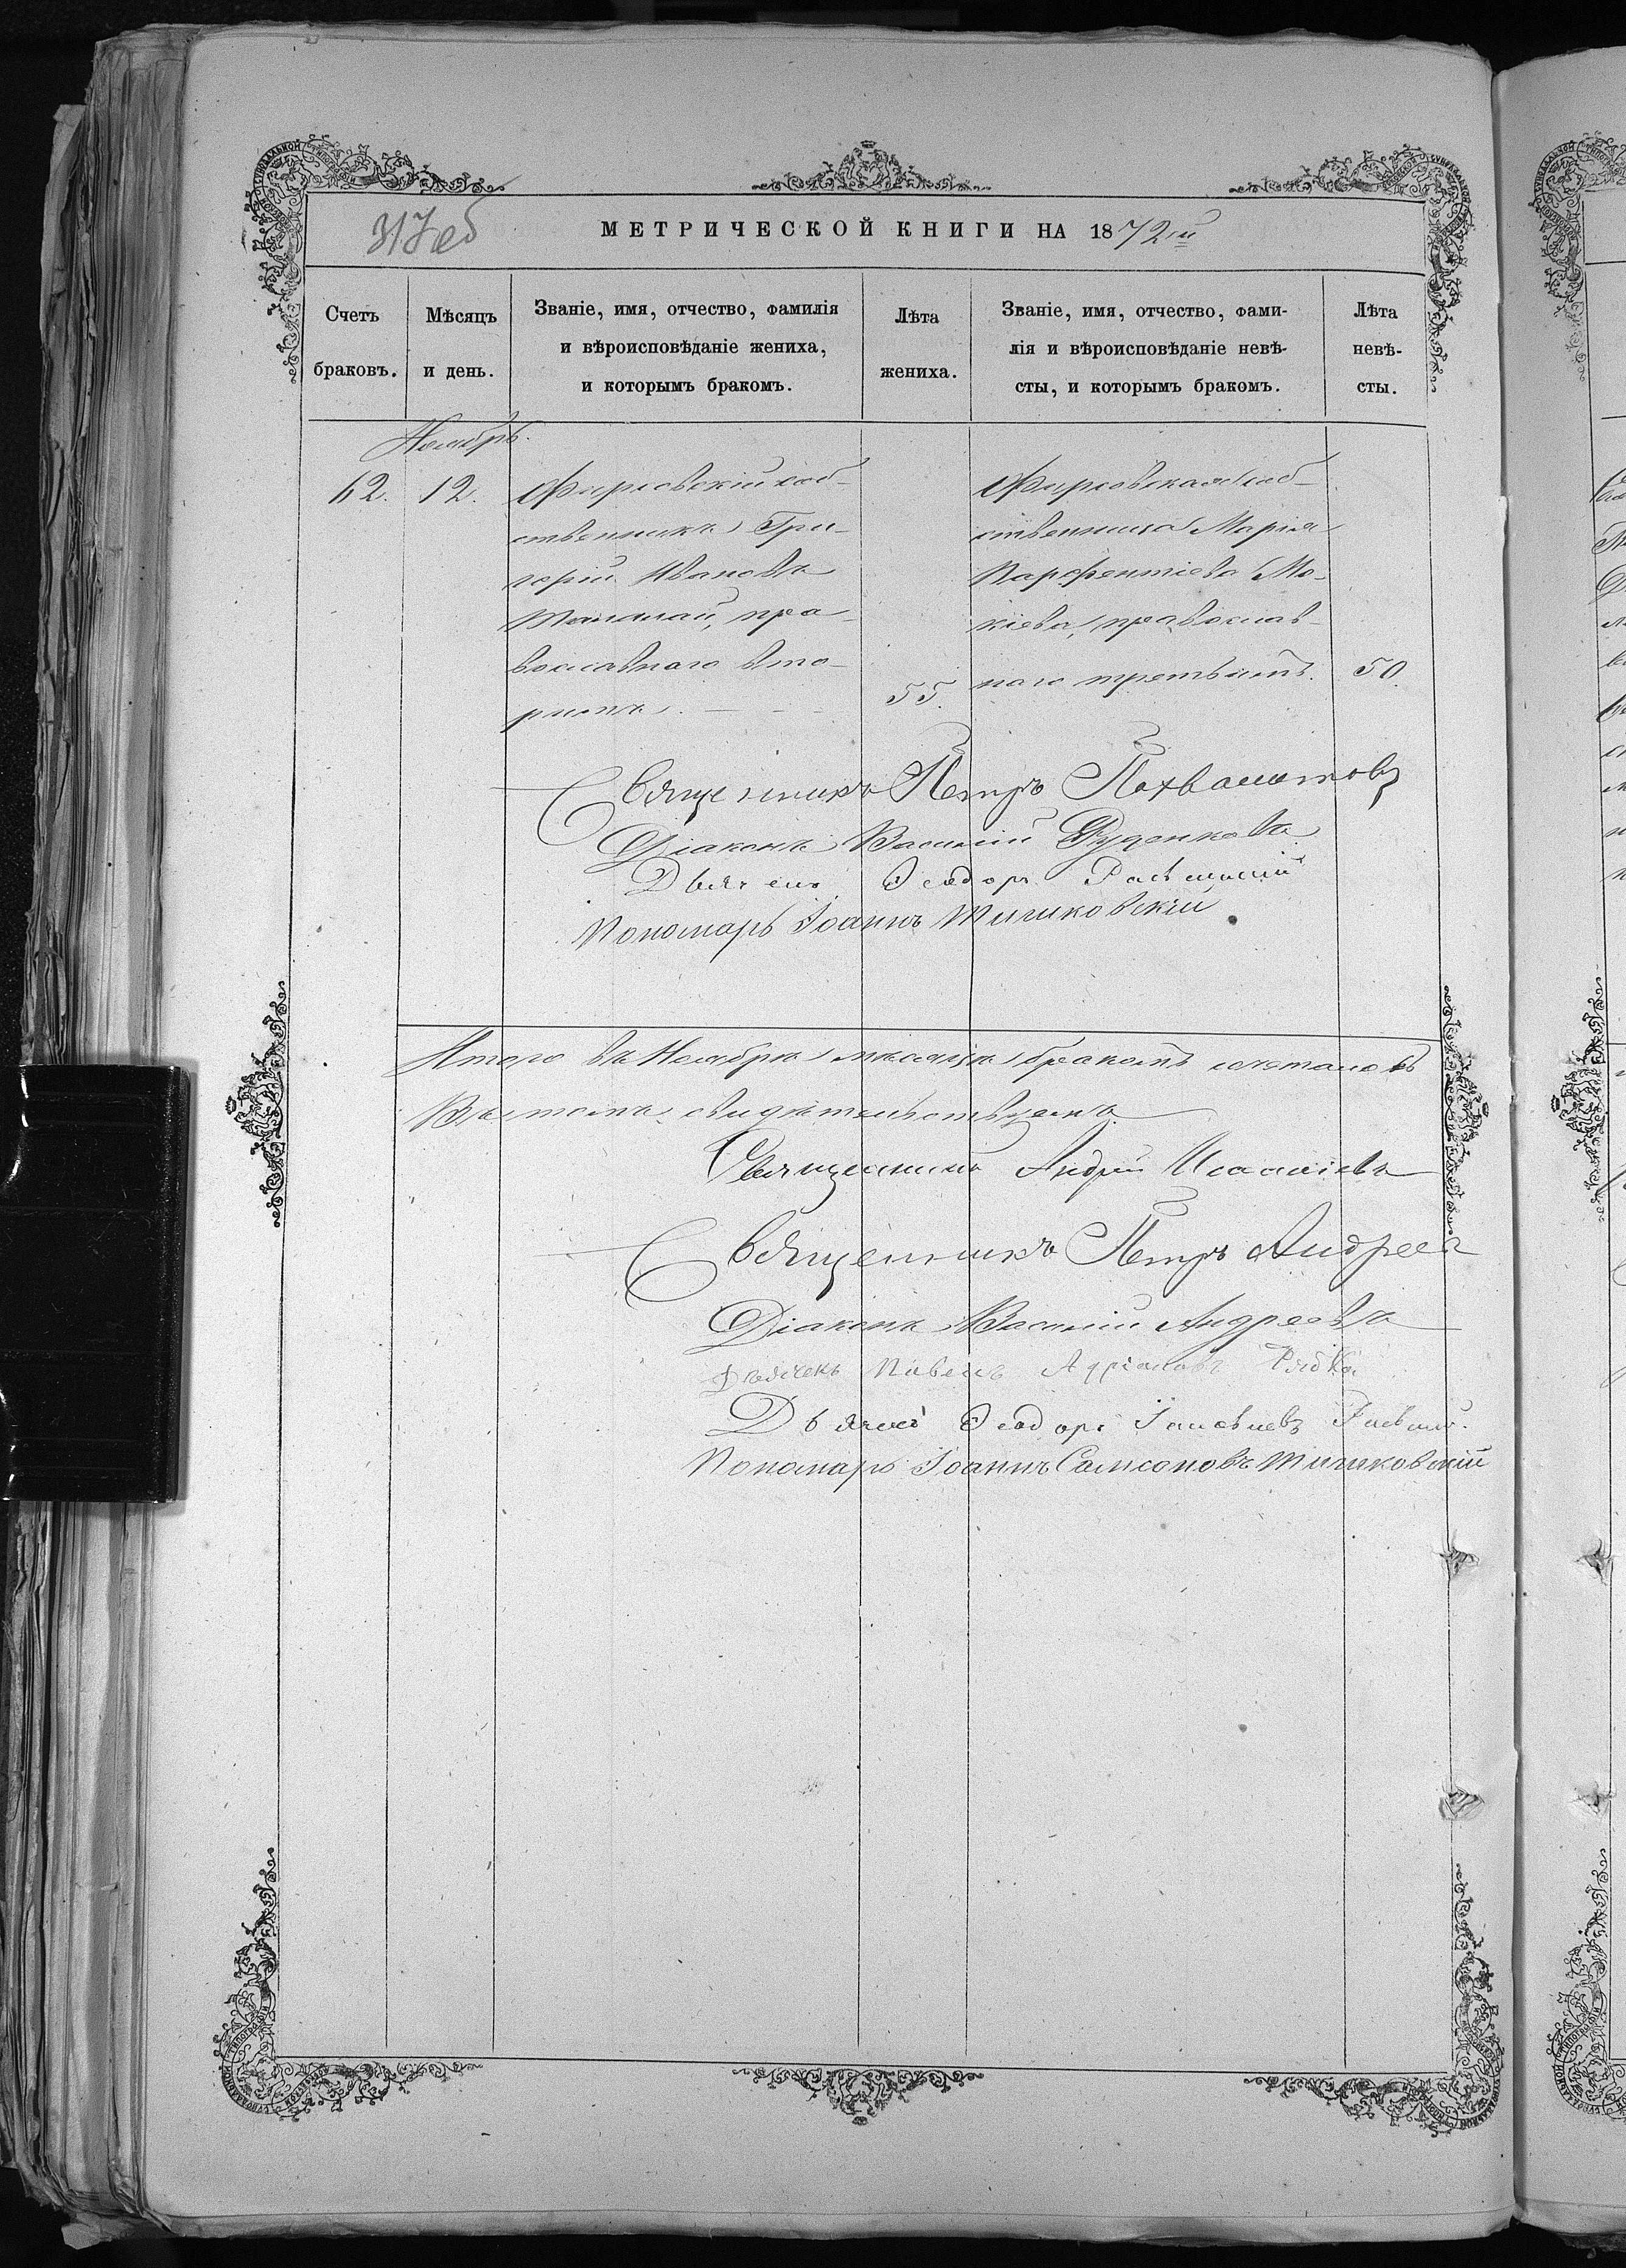 317об
МЕТРИЧЕСКОЙ КНИГИ НА 1872й
Счетъ браковъ.
Мѣсяцъ и день.
Званіе, имя, отчество, фамилія
и вѣроисповѣданіе жениха,
и которымъ бракомъ.
Лѣта жениха.
Званіе, имя, отчество, фами-
лія и вѣроисповѣданіе невѣ-
сты, и которымъ бракомъ.
Лѣта невѣ-
сты.
Ноябрь.
62. 12.
Фирсовскій соб-
ственникъ Гри-
горій Ивановъ
пра-
вославнаго вто-
рымъ.
55.
Фирсовская соб-
ственница Марія
Парфентіева Мо-
кіева, православ-
наго третьимъ.
50.
Священникъ Петръ Похвалитовъ
Діаконъ Василій Руденковъ
Дьячекъ Ѳеодоръ
Пономарь Іоаннъ Тишковскій
Итого въ Ноябрѣ мѣсяцѣ бракомъ сочталось
Въ томъ свидѣтельствуемъ
Священникъ Андрей
Священникъ Петръ Андреев
Діаконъ Василій Андреевъ
Дьячекъ Павелъ Адріановъ
Дьячекъ Ѳеодоръ
Пономарь Іоаннъ Самсоновъ Тишковскій